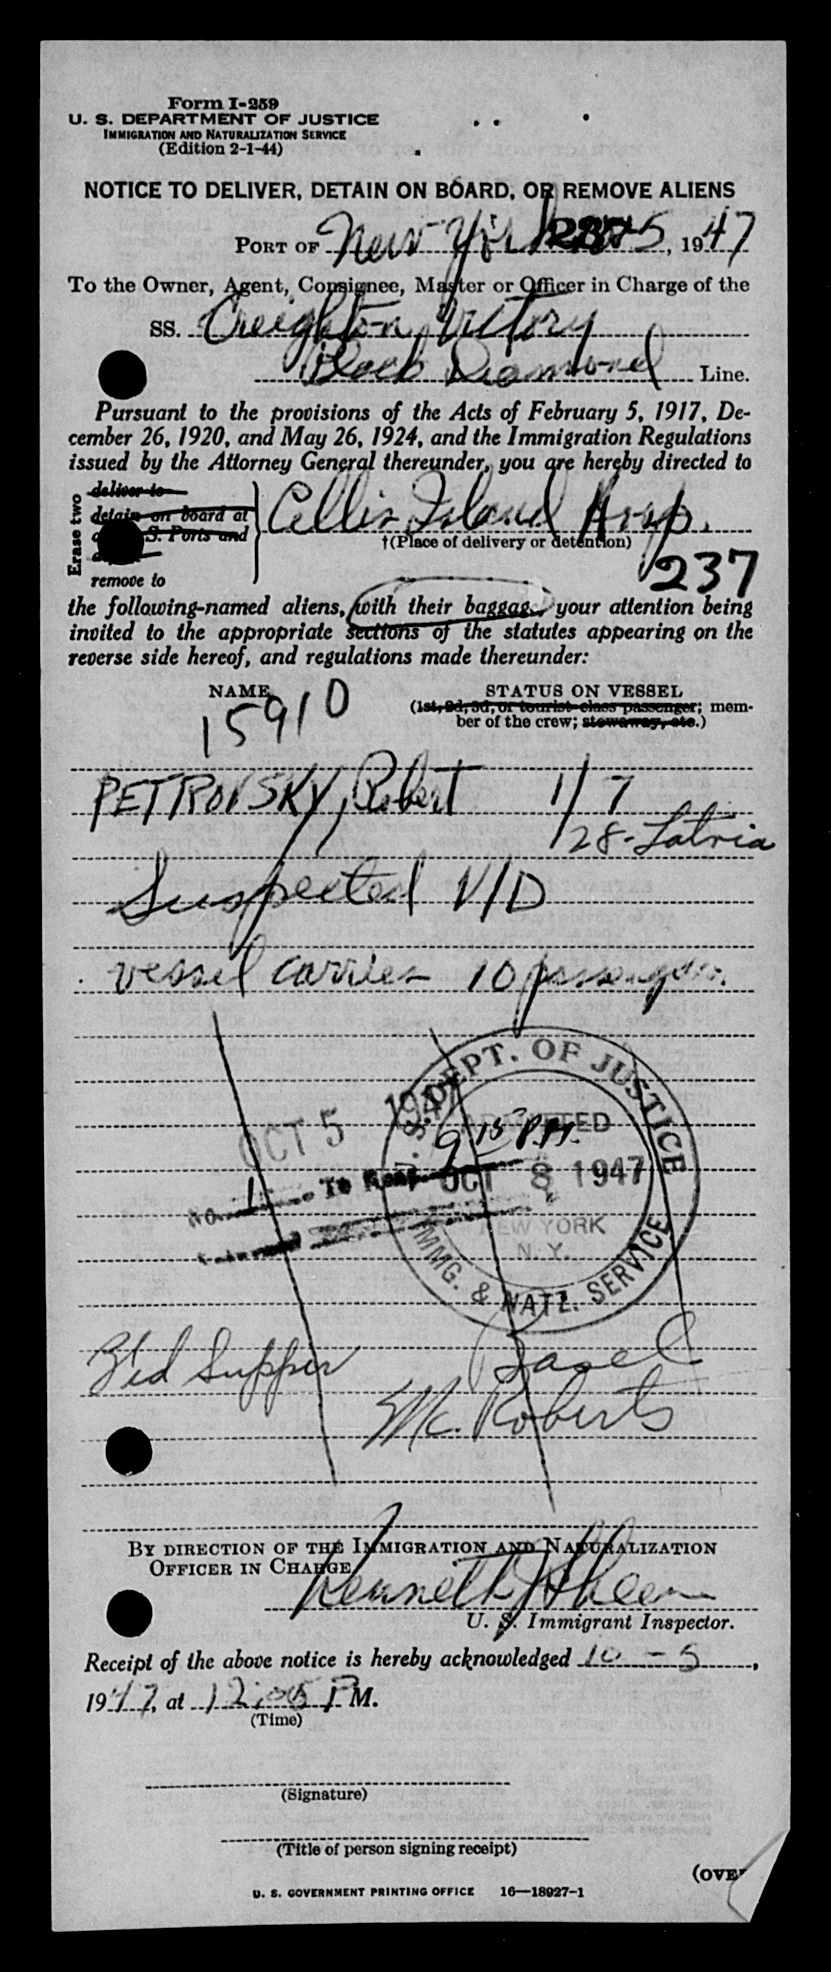 Form I-259
U. S. DEPARTMENT OF JUSTICE
IMMIGRATION AND NATURALIZATION SERVICE
(Edition 2-1-44)
NOTICE TO DELIVER, DETAIN ON BOARD, OR REMOVE ALIENS
PORT OF New York 5, 1947
To the Owner, Agent, Consignee, Master or Officer in Charge of the
SS. Creighton Victory
Black Diamond Line.
Pursuant to the provisions of the Acts of February 5, 1917, De-
cember 26, 1920, and May 26, 1924, and the Immigration Regulations
issued by the Attorney General thereunder, you are hereby directed to
Erase two
deliver to
detain on board at
S. Ports and
remove to
Ellis Island Hosp.
†(Place of delivery or detention)
237
the following-named aliens, with their baggage, your attention being
invited to the appropriate sections of the statutes appearing on the
reverse side hereof, and regulations made thereunder:
NAME STATUS ON VESSEL
(1st, 2d, 3d, or tourist-class passenger; mem-
ber of the crew; stowaway, etc.)
15910
PETROVSKY, Robert 1/7
28-Latvia
Suspected V/D
vessel carries 10 passengers.
U. S. DEPT. OF JUSTICE
ADMITTED
OCT 5 1947
9 15 P.M.
OCT 8 1947
No. 1 To
NEW YORK
N. Y.
IMMG. & NATZ. SERVICE
Supper
Mc. Roberts
BY DIRECTION OF THE IMMIGRATION AND NATURALIZATION
OFFICER IN CHARGE
Kenneth J
U. S. Immigrant Inspector.
Receipt of the above notice is hereby acknowledged 10-5,
1947, at 12:05 P M.
(Time)
(Signature)
(Title of person signing receipt)
(OVE
U. S. GOVERNMENT PRINTING OFFICE 16—18927-1